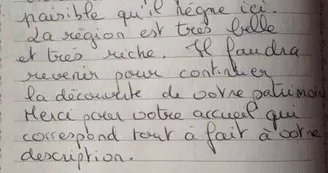 paisible qu'il règne ici.
La région est très belle
et très riche. Il faudra
revenir pour continuer
la découverte de votre patrimoi
Merci pour votre accueil qui
correspond tout à fait à votre
description.